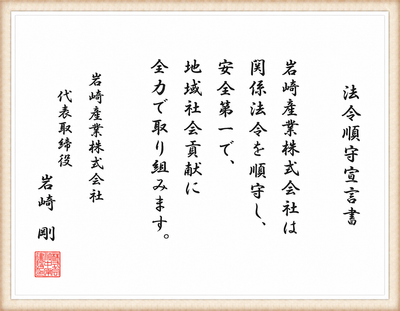 法令順守宣言書
岩崎産業株式会社は
関係法令を順守し、
安全第一で、
地域社会貢献に
全力で取り組みます。
岩崎産業株式会社
代表取締役
岩崎 剛